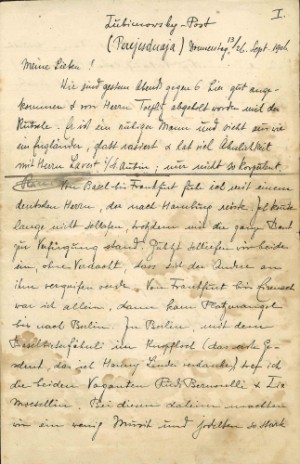 I.
Lubimowsky-Post
(Perejesdnaja) Donnerstag, 13/26. Sept. 1906
Meine Lieben!
Wir sind gestern Abend gegen 6 Uhr gut ange-
kommen & von Herrn abgeholt worden mit der
Kutsche. Er ist ein ruhiger Mann und sieht aus wie
ein Engländer, glatt rasiert & hat viel Ähnlichkeit
mit Herrn ; nur nicht so korpulent
Von Basel bis Frankfurt fuhr ich mit einem
deutschen Herrn, der nach Hamburg reiste. Ich konnte
lange nicht schlafen, trotzdem mir die ganze Bank
zur Verfügung stand. schliefen wir beide
ein, ohne Verdacht, dass sich der Andere an
ihm vergreifen werde. Von Frankfurt bis Eisenach
war ich allein, dann kam Platzmangel
bis nach Berlin. In Berlin, mit dem
im Knopfloch (das erste
, das ich verdanke) traf ich
die beiden Vaganten Rud. Bernoulli &
. Bei diesem daheim machten
wir ein wenig Musik und so stark